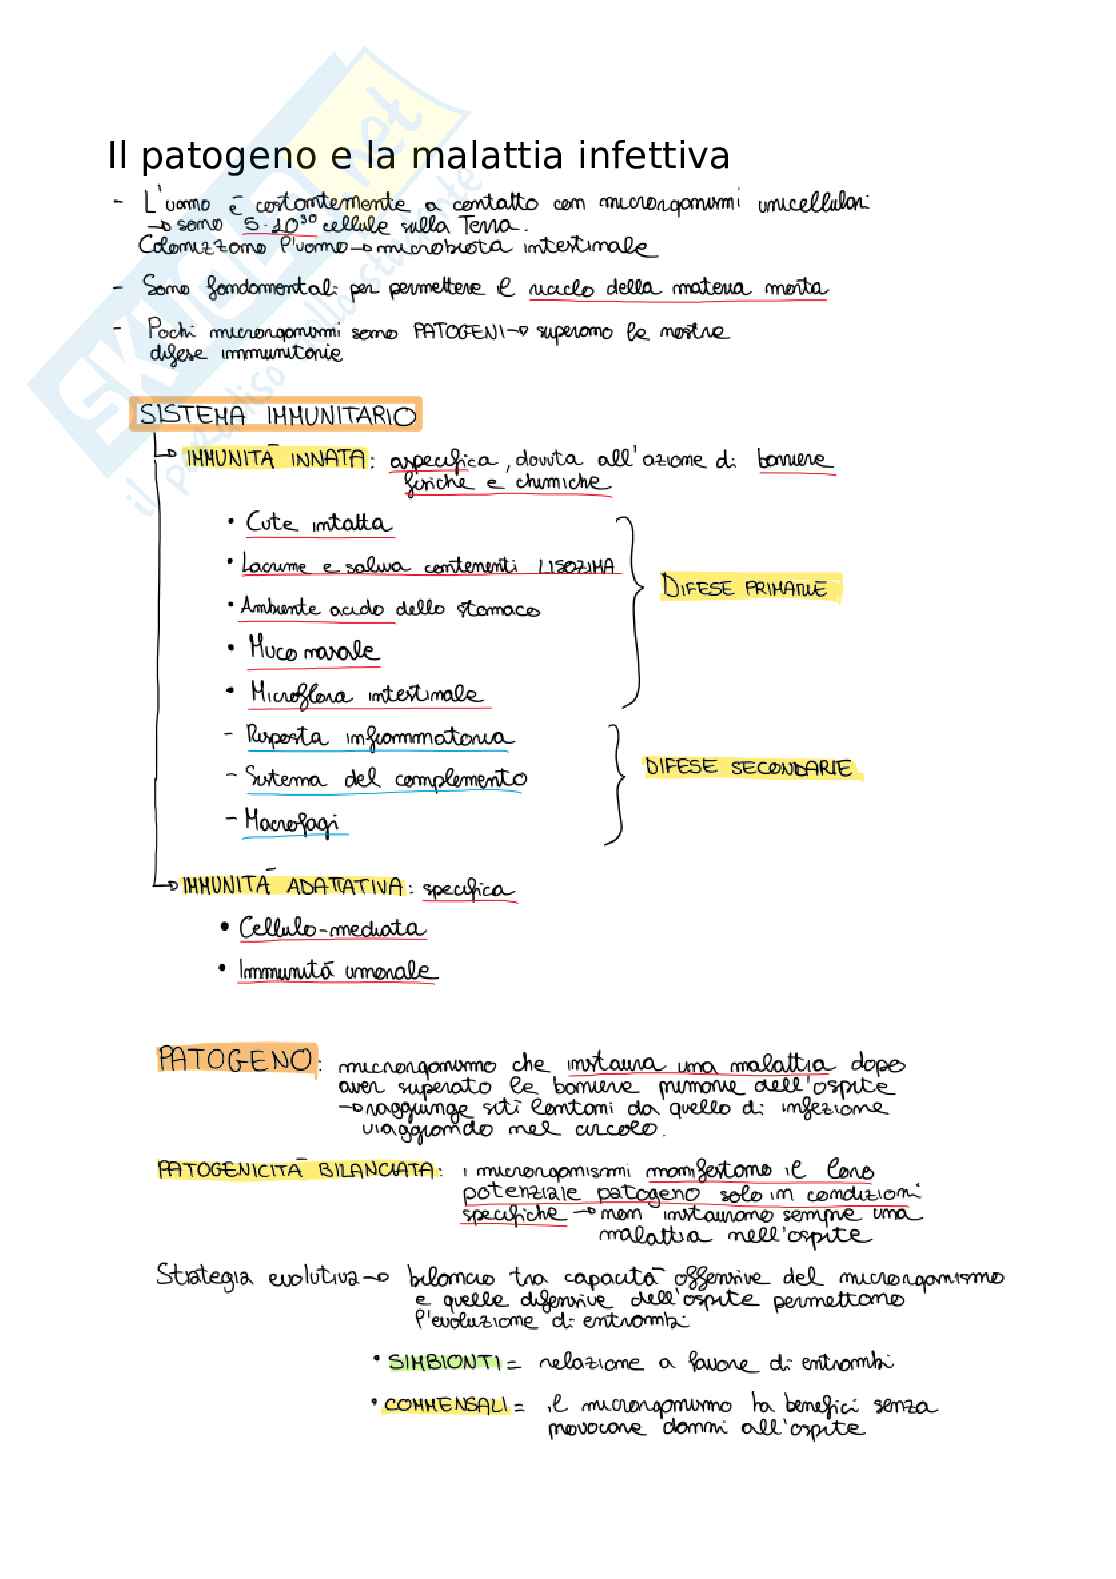 Il patogeno e la malattia infettiva
- L'uomo è costantemente a contatto con microrganismi unicellulari
→ sono 5·10³⁰ cellule sulla Terra.
Colonizzano l'uomo → microbiota intestinale
- Sono fondamentali per permettere il riciclo della materia morta
- Pochi microrganismi sono PATOGENI → superano le nostre
difese immunitarie
SISTEMA IMMUNITARIO
→ IMMUNITÀ INNATA: aspecifica, dovuta all'azione di barriere
fisiche e chimiche
• Cute intatta
• Lacrime e saliva contenenti LISOZIMA
• Ambiente acido dello stomaco
• Muco nasale
• Microflora intestinale
DIFESE PRIMARIE
- Risposta infiammatoria
- Sistema del complemento
- Macrofagi
DIFESE SECONDARIE
→ IMMUNITÀ ADATTATIVA: specifica
• Cellulo-mediata
• Immunità umorale
PATOGENO: microrganismo che instaura una malattia dopo
aver superato le barriere primarie dell'ospite
→ raggiunge siti lontani da quello di infezione
viaggiando nel circolo.
PATOGENICITÀ BILANCIATA: i microrganismi manifestano il loro
potenziale patogeno solo in condizioni
specifiche → non instaurano sempre una
malattia nell'ospite
Strategia evolutiva → bilancio tra capacità offensive del microrganismo
e quelle difensive dell'ospite permettono
l'evoluzione di entrambi
• SIMBIONTI = relazione a favore di entrambi
• COMMENSALI = il microrganismo ha benefici senza
provocare danni all'ospite
SKUOLA.net
il paradiso dello studente